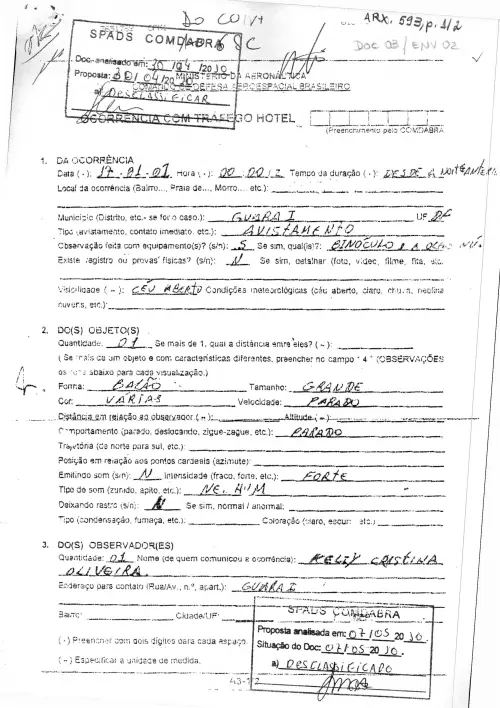 Do COMA
ARX. 593, p. 1/2
DOC 03/ENV 02
SPADS COMDABRA
Doc. analisado em: 30/04/2010
Proposta: 30/04/2010
a) DESCLASSIFICAR
MINISTÉRIO DA AERONÁUTICA
COMANDO DE DEFESA AEROESPACIAL BRASILEIRO
OCORRÊNCIA COM TRÁFEGO HOTEL
(Preenchimento pelo COMDABRA
1. DA OCORRÊNCIA
Data (·): 17.01.01 Hora (·): 00:00:2 Tempo da duração (·): DESDE A NOITE ANTERI
Local da ocorrência (Bairro..., Praia de..., Morro... etc.):
Município (Distrito, etc.- se for o caso.): GUARA I UF DF
Tipo (avistamento, contato imediato, etc.): AVISTAMENTO
Observação feita com equipamento(s)? (s/n): S Se sim, qual(is)?: BINÓCULO E A OLHO NÚ.
Existe registro ou provas físicas? (s/n): N Se sim, detalhar (foto, vídeo, filme, fita, etc.
Visibilidade (~): CÉU ABERTO Condições meteorológicas (céu aberto, claro, chuva, neblina
nuvens, etc.):
2. DO(S) OBJETO(S)
Quantidade: 01 Se mais de 1, qual a distância entre eles? (~):
(Se mais de um objeto e com características diferentes, preencher no campo "4" (OBSERVAÇÕES
os itens abaixo para cada visualização.)
Forma: BALÃO Tamanho: GRANDE
Cor: VARIAS Velocidade: PARADO
Distância em relação ao observador (~): Altitude (~):
Comportamento (parado, deslocando, zigue-zague, etc.): PARADO
Trajetória (de norte para sul, etc.):
Posição em relação aos pontos cardeais (azimute):
Emitindo som (s/n): N Intensidade (fraco, forte, etc.): FORTE
Tipo de som (zunido, apito, etc.): NENHUM
Deixando rastro (s/n): N Se sim, normal / anormal:
Tipo (condensação, fumaça, etc.): Coloração (claro, escuro etc.)
3. DO(S) OBSERVADOR(ES)
Quantidade: 01 Nome (de quem comunicou a ocorrência): KELLY CRISTINA
OLIVEIRA.
Endereço para contato (Rua/Av., n.º, apart.): GUARA I
Bairro: Cidade/UF:
(·) Preencher com dois dígitos para cada espaço.
(~) Especificar a unidade de medida.
SPADS COMDABRA
Proposta analisada em: 07/05 2010.
Situação do Doc: 07/05 2010.
a) DESCLASSIFICADO